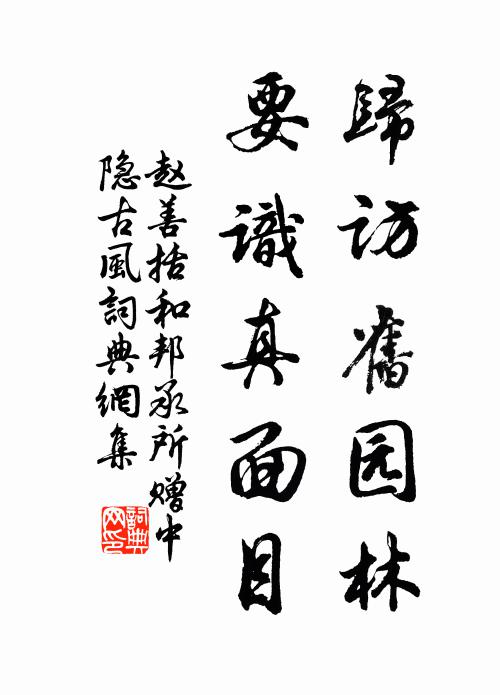 歸訪舊园林
要識真面目
赵善括和邦承所赠中
隐古風詞典網集
詞典网印